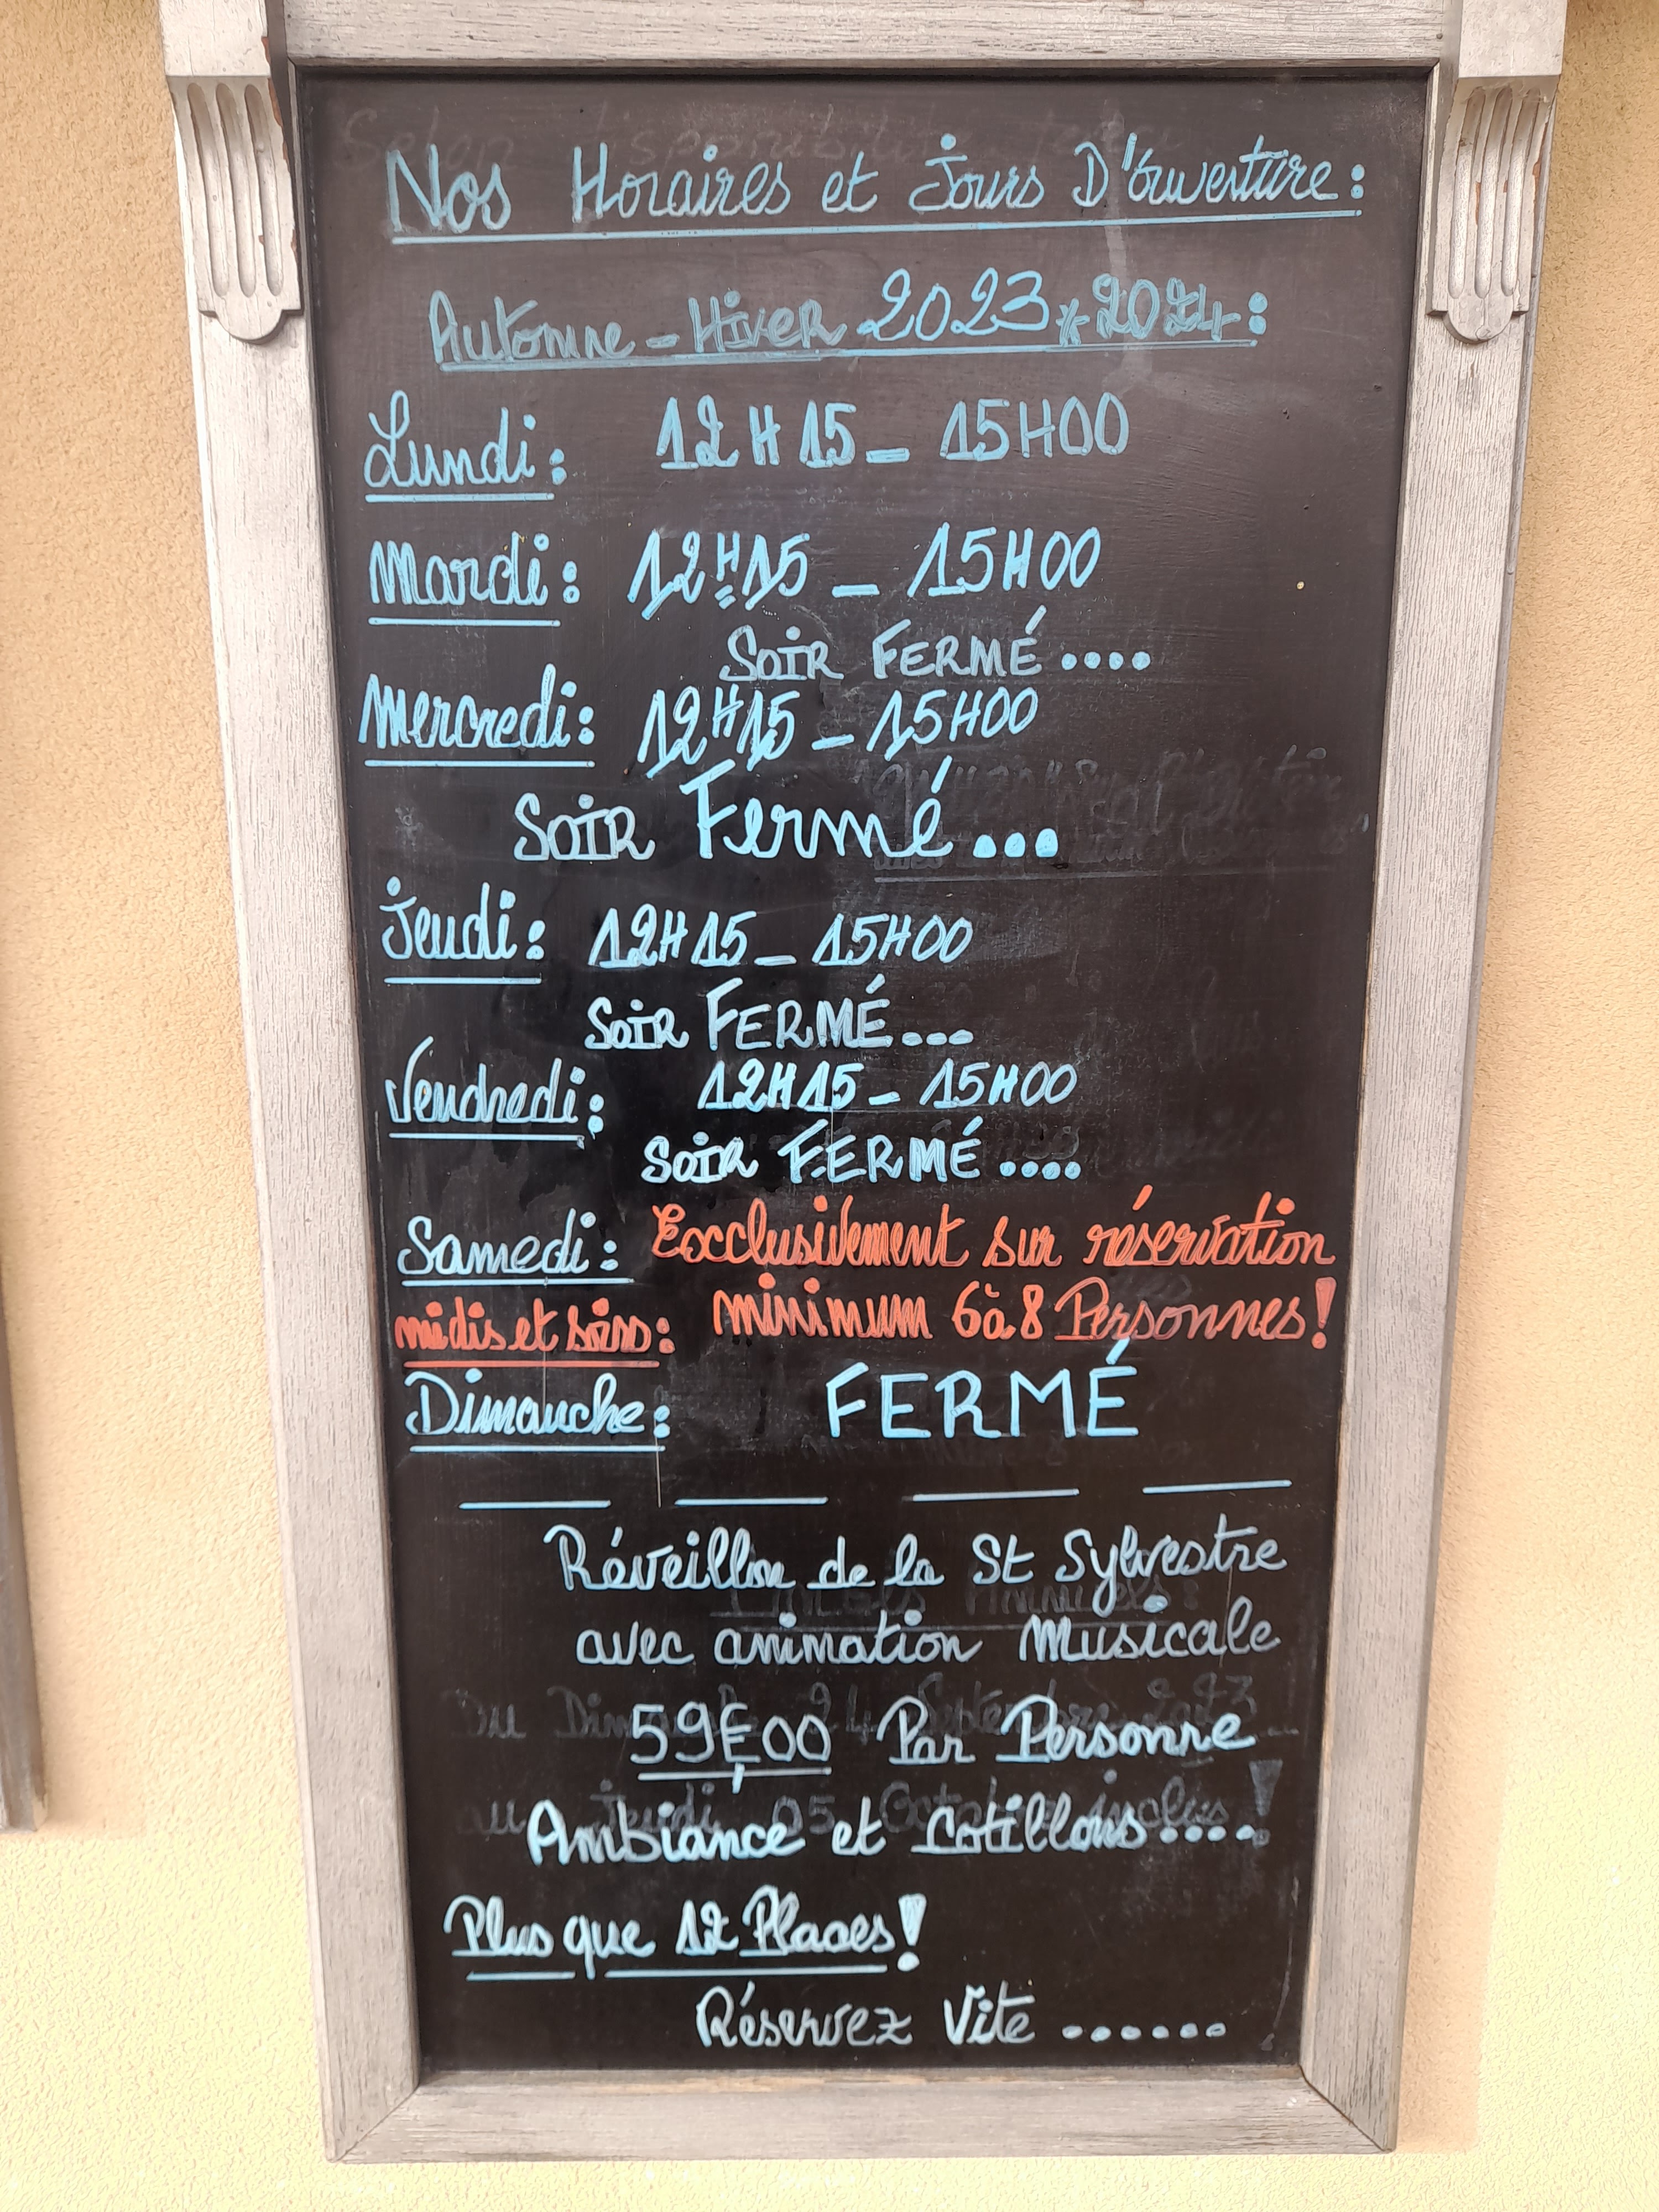 Nos Horaires et Jours D'ouverture:
Automne - Hiver 2023 * 2024:
Lundi: 12H15 - 15H00
Mardi: 12H15 - 15H00
SOIR FERMÉ....
Mercredi: 12H15 - 15H00
SOIR Fermé...
Jeudi: 12H15 - 15H00
SOIR FERMÉ...
Vendredi: 12H15 - 15H00
SOIR FERMÉ....
Samedi: Exclusivement sur réservation
midis et soirs: minimum 6 à 8 Personnes!
Dimanche: FERMÉ
Réveillon de la St Sylvestre
avec animation Musicale
59€00 Par Personne
Ambiance et Cotillons....
Plus que 12 Places!
Réservez Vite ......